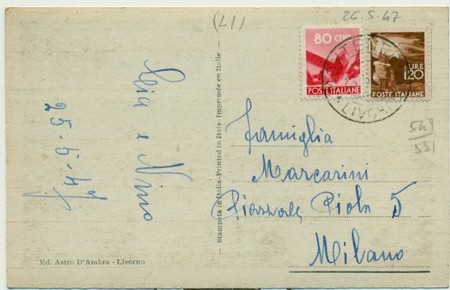 (LI)
26-5-47
80 CENT
POSTE ITALIANE
LIRE
1,20
POSTE ITALIANE
Lia e Nino
25-5-47
Stampata in Italia-Printed in Italy-Imprimée en Italie
famiglia
Marcarini
Piazzale Piola 5
Milano
549
551
Ed. Astro D'Ambra - Livorno